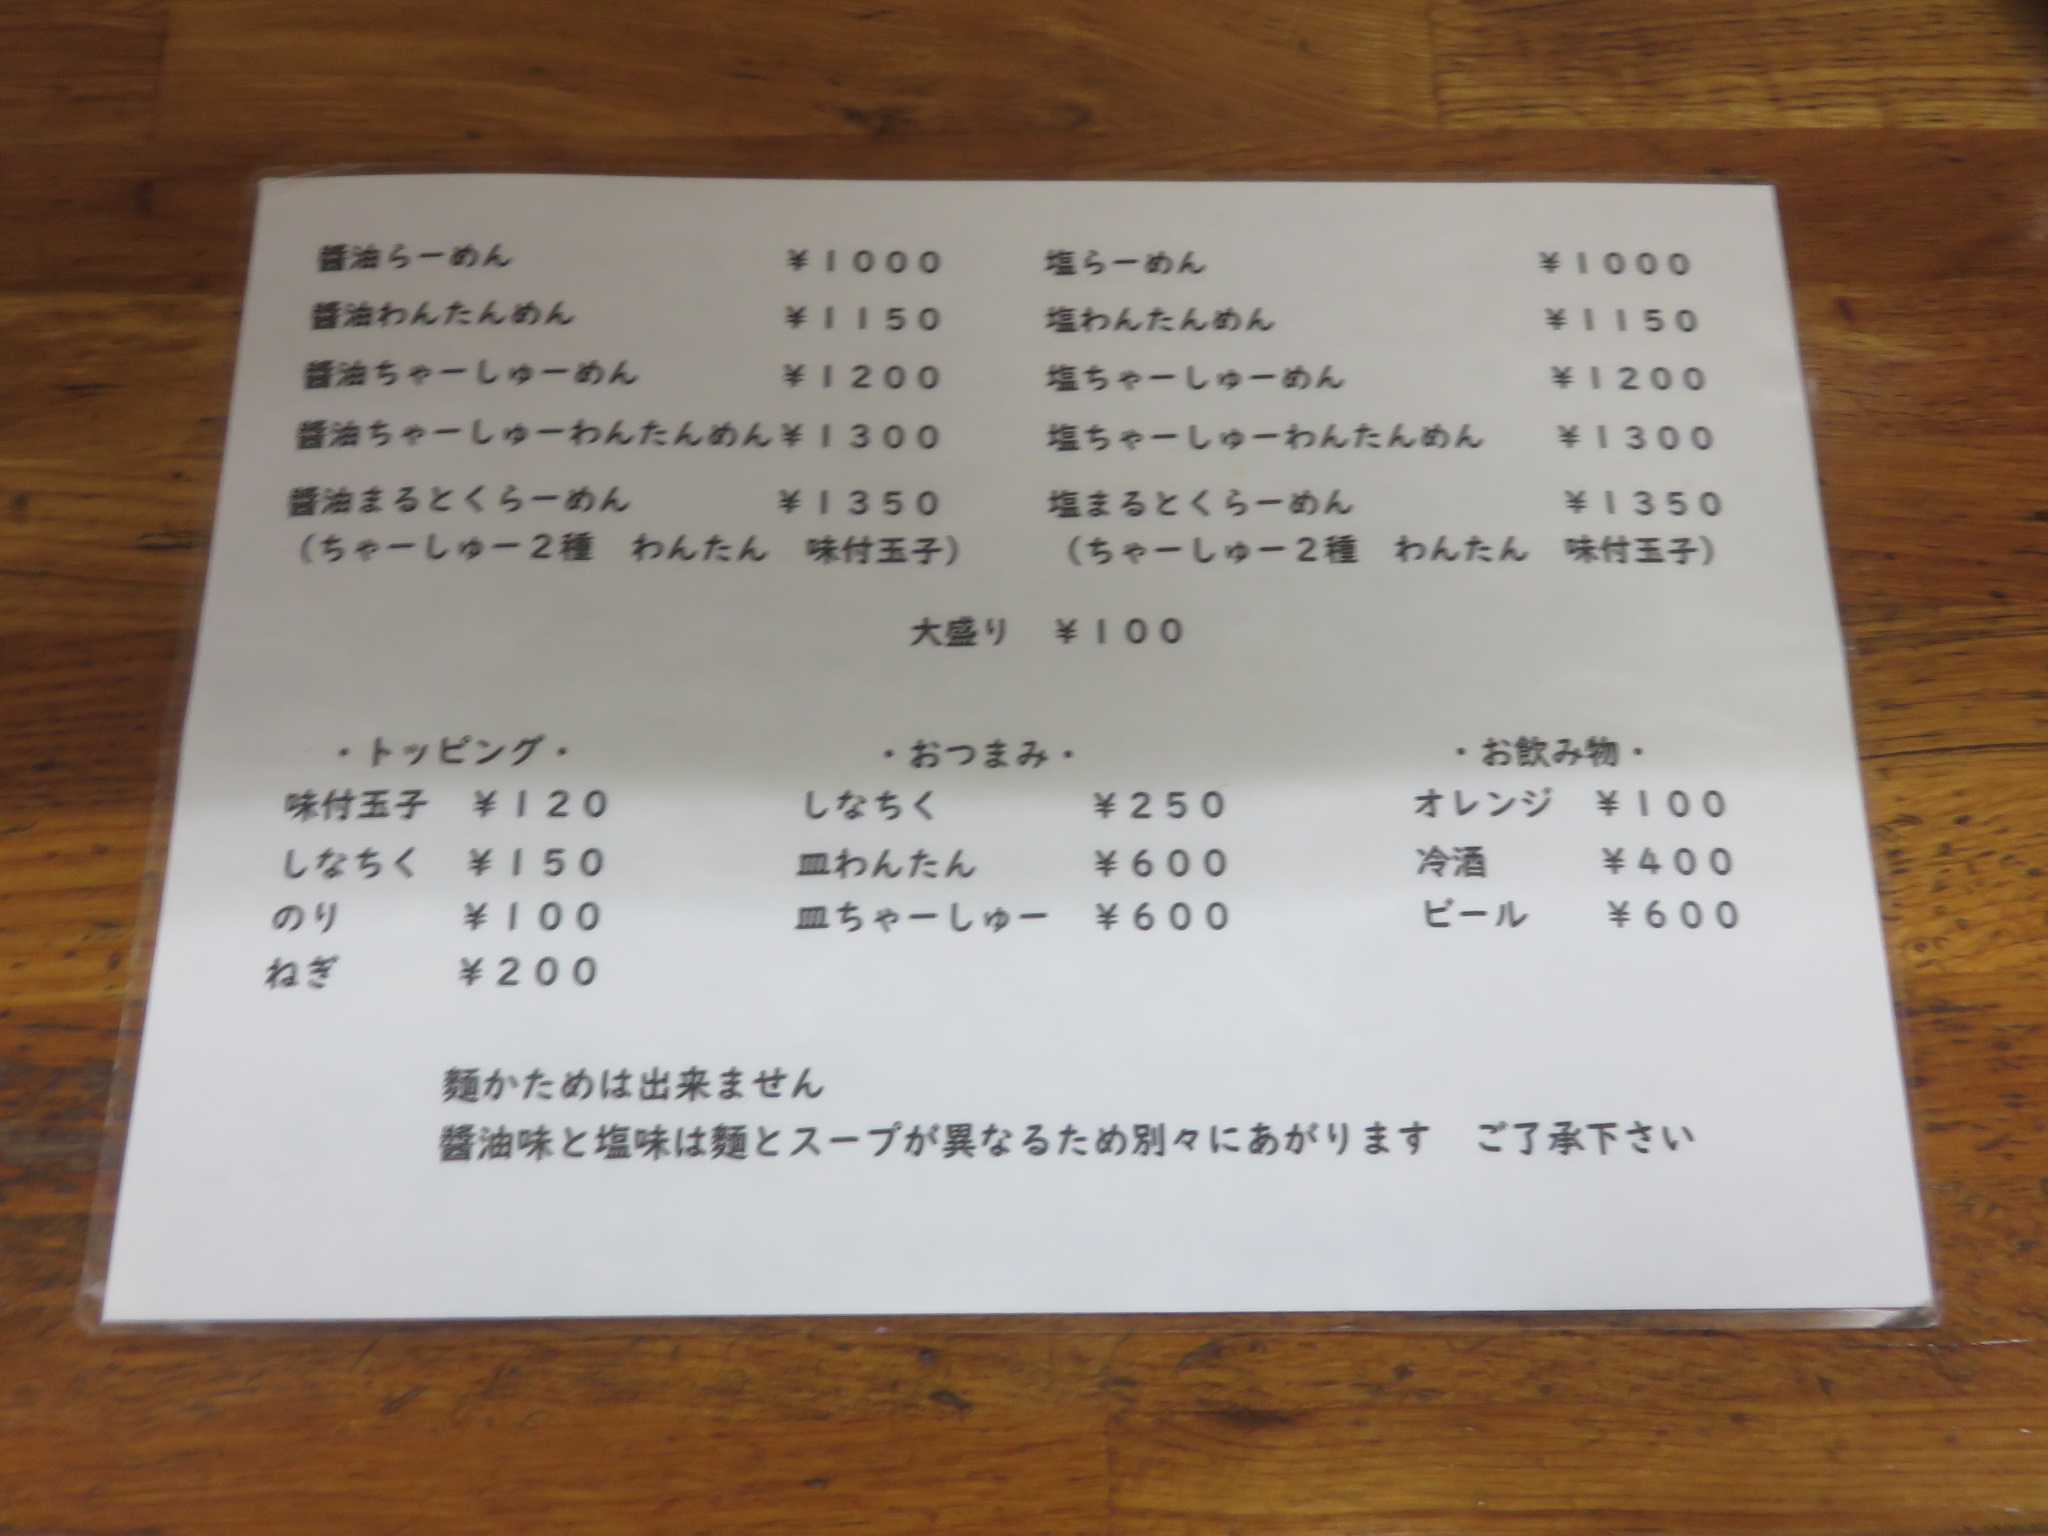 醤油らーめん ￥1000 塩らーめん ￥1000
醤油わんたんめん ￥1150 塩わんたんめん ￥1150
醤油ちゃーしゅーめん ￥1200 塩ちゃーしゅーめん ￥1200
醤油ちゃーしゅーわんたんめん￥1300 塩ちゃーしゅーわんたんめん ￥1300
醤油まるとくらーめん ￥1350 塩まるとくらーめん ￥1350
（ちゃーしゅー２種　わんたん　味付玉子） （ちゃーしゅー２種　わんたん　味付玉子）
大盛り　￥100
・トッピング・ ・おつまみ・ ・お飲み物・
味付玉子 ￥120 しなちく ￥250 オレンジ ￥100
しなちく ￥150 皿わんたん ￥600 冷酒 ￥400
のり ￥100 皿ちゃーしゅー ￥600 ビール ￥600
ねぎ ￥200
麺かためは出来ません
醤油味と塩味は麺とスープが異なるため別々にあがります　ご了承下さい